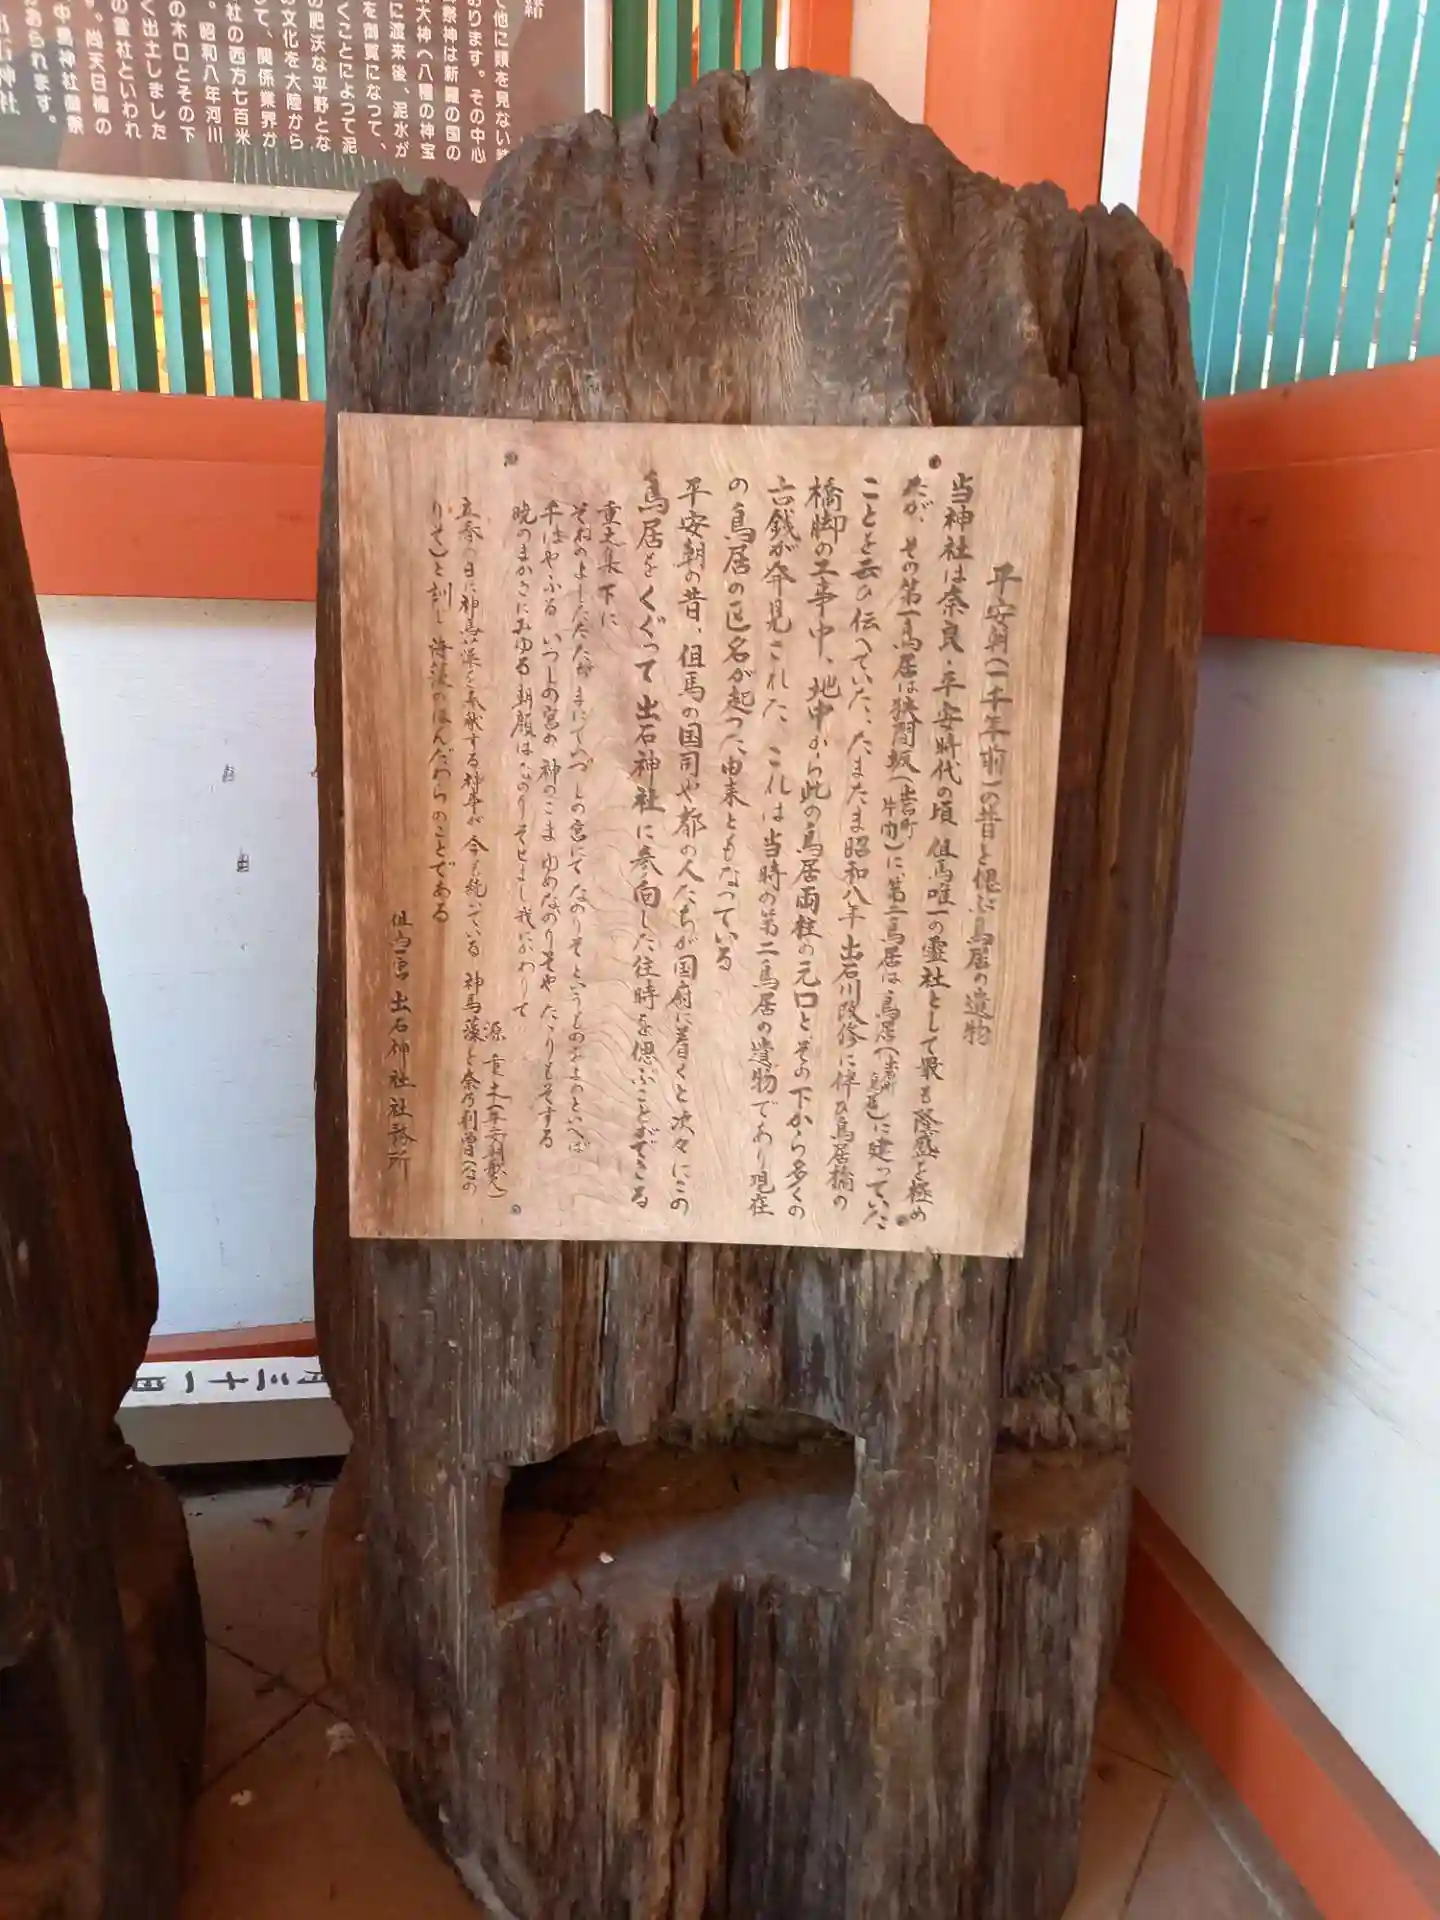 平安朝(一千年前)の昔を偲ぶ鳥居の遺物
当神社は奈良・平安時代の頃 但馬唯一の霊社として最も隆盛を極め
たが、その第一鳥居は狭間坂(出石町片間)に、第二鳥居は鳥居(出石町鳥居)に建っていた
ことを云ひ伝へていた、たまたま昭和八年出石川改修に伴ひ鳥居橋の
橋脚の工事中、地中から此の鳥居両柱の元口とその下から多くの
古銭が発見された これは当時の第二鳥居の遺物であり現在
の鳥居の区名が起った由来ともなっている
平安朝の昔、但馬の国司や都の人たちが国府に着くと次々にこの
鳥居をくぐって出石神社に参向した往時を偲ぶことができる
重之集下に
というものをよめといへば
千はやふる いつしの宮の 神のこま ゆめなのりそや たゝりもそする
暁の まかきにみゆる 朝顔は なのりそせまし 我にかわりて
源重之
立春の日に神馬藻を奉献する神事が 今も続いている 神馬藻を奈乃利曽(なの
りそ)と訓じ 海藻のほんだわらのことである
但馬一宮 出石神社社務所
て他に類を見ない
ります。その中心
祭神は新羅の国の
大神へ八種の神宝
に渡来後、泥水が
を御覧になって、
くことによって泥
の肥沃な平野とな
文化を大陸から
て、関係業界か
社の西方七百米
。昭和八年河川
の木口とその下
く出土しました
の霊社といわれ
。尚天日槍の
中嶋神社御祭
があられます。
出石神社
月三十一日